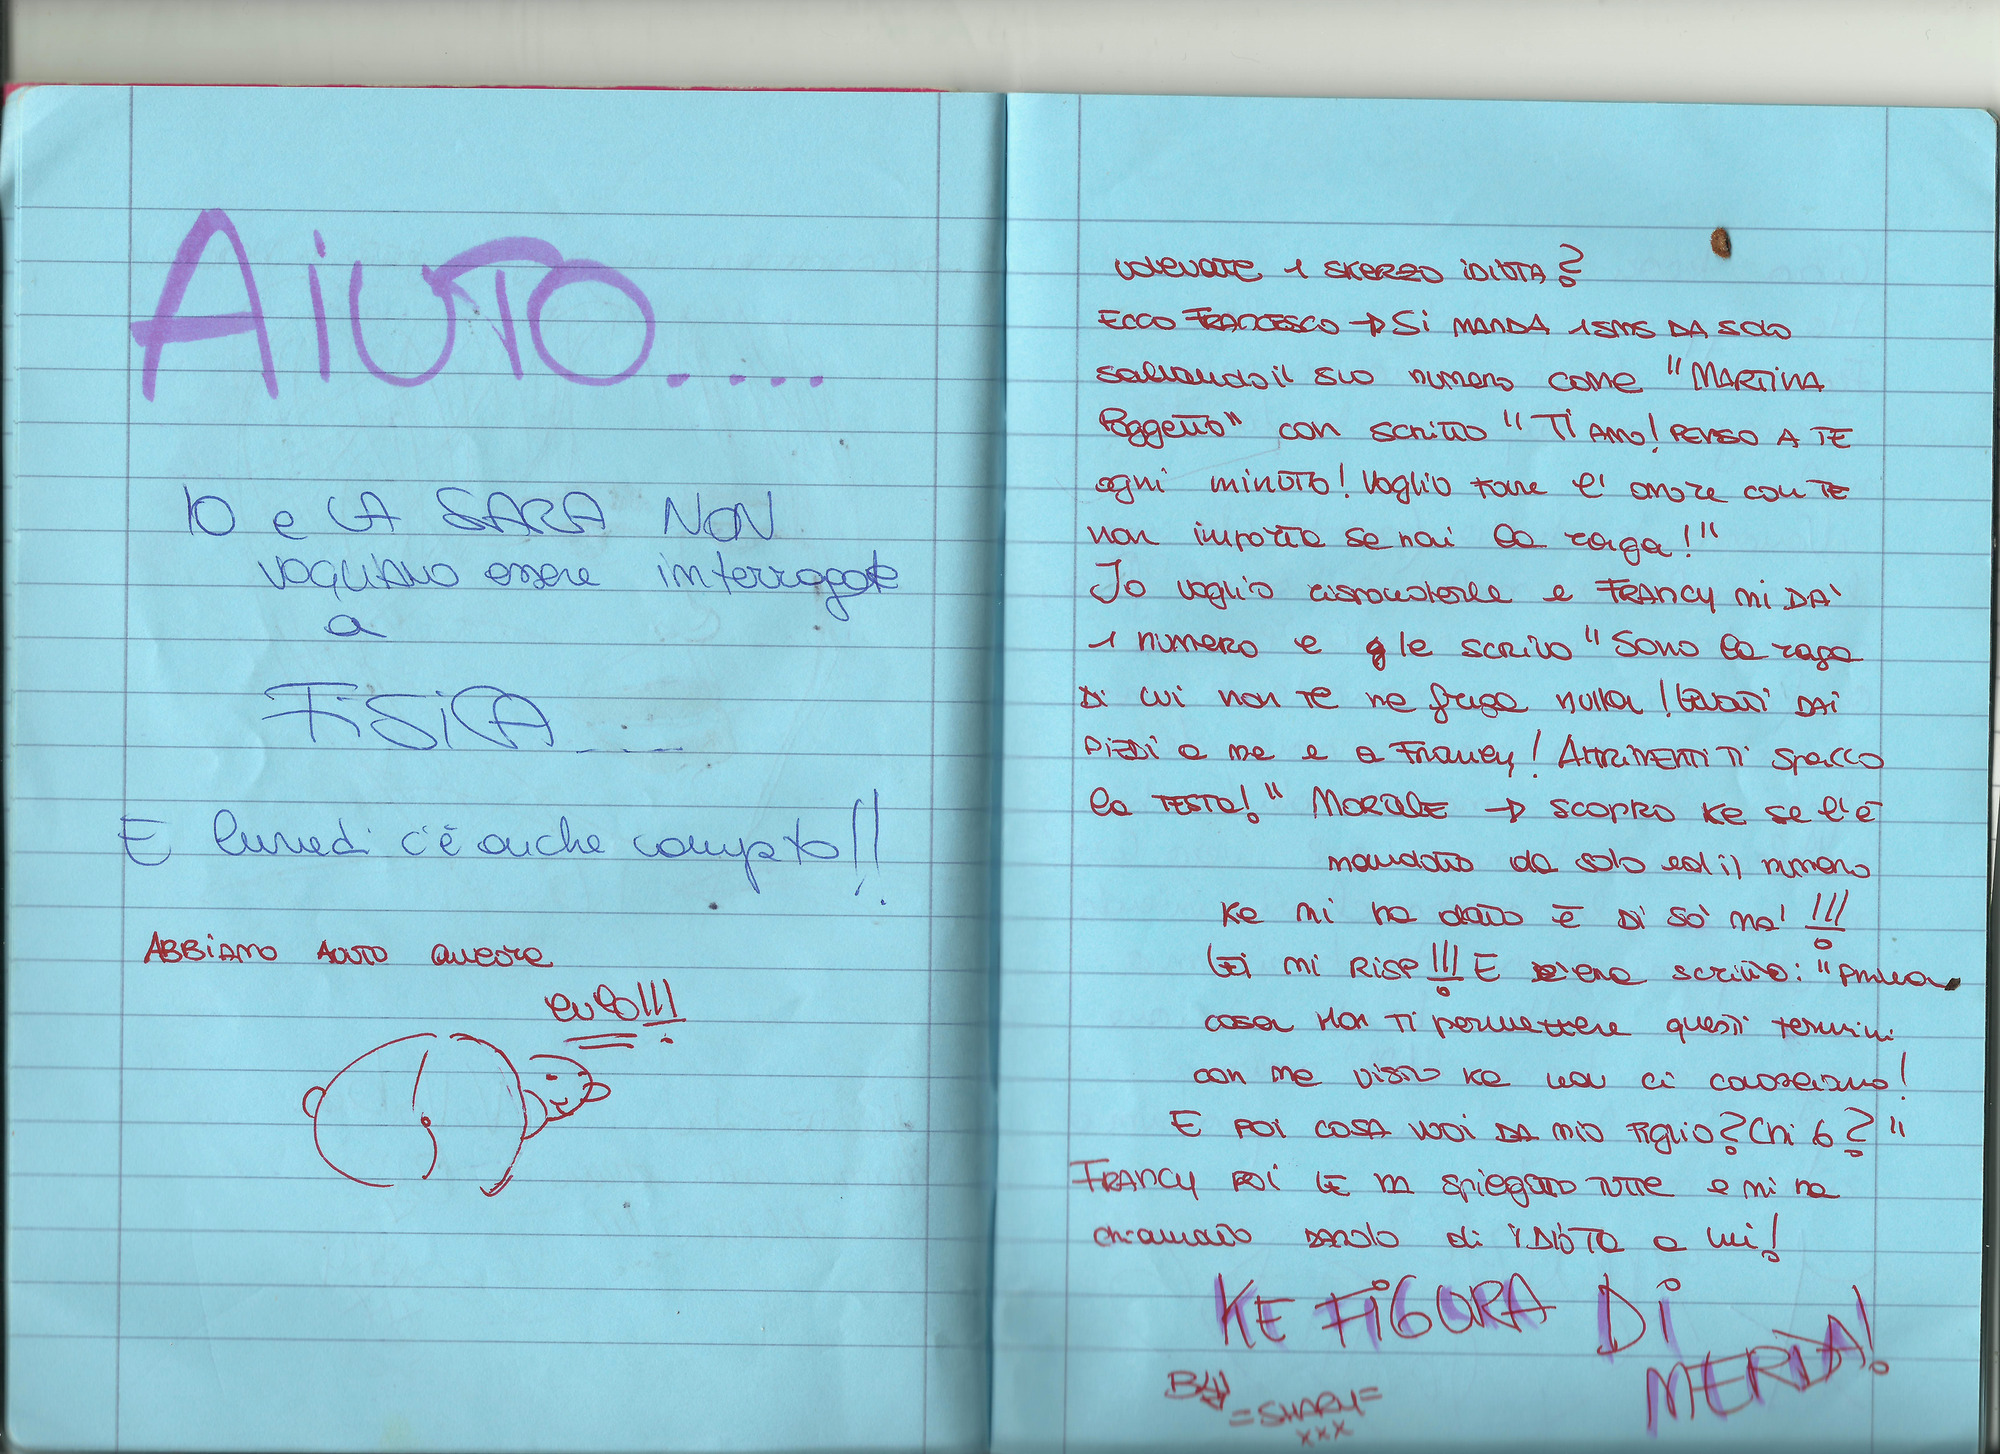 AIUTO....
IO e LA SARA NON
VOGLIAMO essere interrogate
a
FISICA.....
E lunedì c'è anche compito!!
ABBIAMO AVUTO QUESTO
culo!!!
volevate 1 SKERZO IDIOTA?
ECCO FRANCESCO → Si MANDA 1 SMS DA SOLO
salvando il suo numero come "MARTINA
Poggetto" con scritto "Ti AMO! PENSO A TE
ogni minuto! Voglio fare l'amore con TE
non importa se hai la raga!"
Io voglio risponderle e FRANCY mi DA'
1 numero e le scrivo "Sono la raga
Di cui non te ne frega nulla! Levati DAI
PIEDI a me e a Francy! ALTRIMENTI Ti spacco
la TESTA!" MORALE → SCOPRO KE se l'è
mandato da solo ed il numero
Ke mi ha dato è Di Sò ma'!!!
Lei mi RISP!!! E c'era scritto: "Prima
cosa non Ti permettere questi termini
con me visto ke non ci conosciamo!
E POI COSA VUOI DA MIO FIGLIO? Chi 6?"
FRANCY POI LE ha spiegato TUTTE e mi ha
chiamato DANDO di IDIOTA a lui!
KE FIGURA Di
MERDA!
By
=SHARY=
xxx